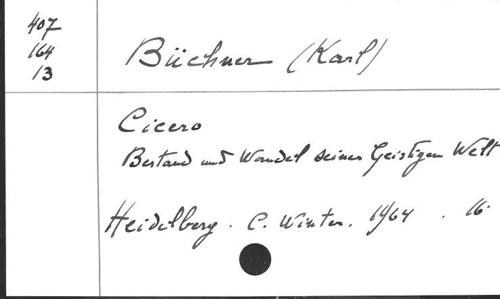 407
164
13
Büchner (Karl)
Cicero
Bestand und Wandel seiner Geistigen Welt
Heidelberg. C. Winter. 1964. 16.